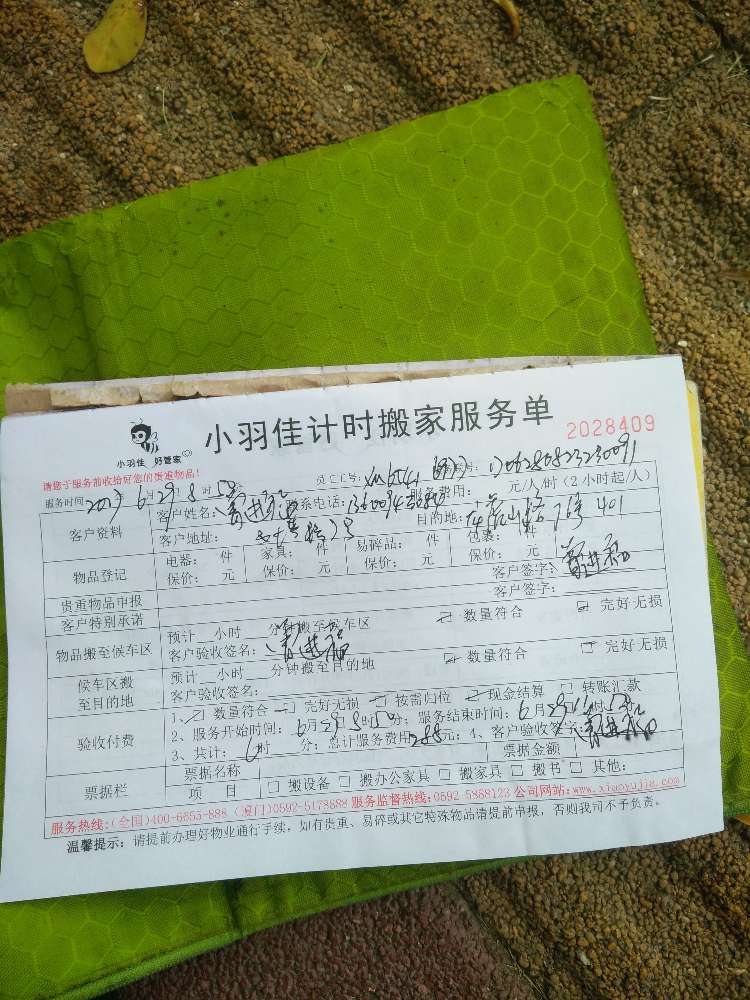 小羽佳 好管家
小羽佳计时搬家服务单
2028409
请您于服务前收拾好您的贵重物品!
服务时间 2017 6月29 8时 50
客户资料 客户姓名: 联系电话: 服务费用: 元/人/时(2小时起/人)
客户地址: 目的地: 7号 401
物品登记 电器: 件 家具: 件 易碎品: 件 包装: 件
保价: 元 保价: 元 保价: 元 保价: 元
贵重物品申报 客户签字:
客户特别承诺 客户签字:
物品搬至候车区 预计 小时 分钟搬至候车区 数量符合 完好无损
客户验收签名:
候车区搬至目的地 预计 小时 分钟搬至目的地 数量符合 完好无损
客户验收签名:
验收付费 1、 数量符合 完好无损 按需归位 现金结算 转账汇款
2、服务开始时间: 6月29日8时50分; 服务结束时间: 6月29日 时 分
3、共计: 6时 分; 总计服务费用288元; 4、客户验收签字:
票据栏 票据名称 票据金额
项 目 搬设备 搬办公家具 搬家具 搬书 其他:
服务热线:(全国)400-6655-888 (厦门)0592-5178888 服务监督热线:0592-5888123 公司网站:www.xiaoyujia.com
温馨提示: 请提前办理好物业通行手续, 如有贵重、易碎或其它特殊物品请提前申报, 否则我司不予负责。